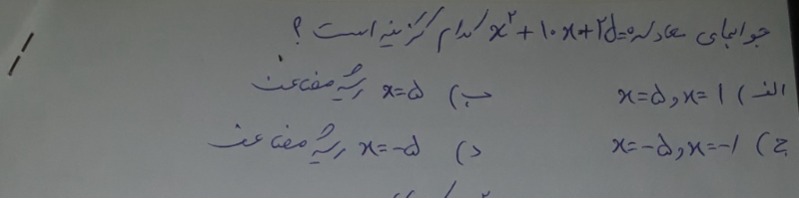 جوابهای معادله x²+۱۰x+۲۵=۰ کدام گزینه است؟
الف) x=۵ و x=۱ ب) x=۵ ریشه مضاعف
ج) x=-۵ و x=-۱ د) x=-۵ ریشه مضاعف